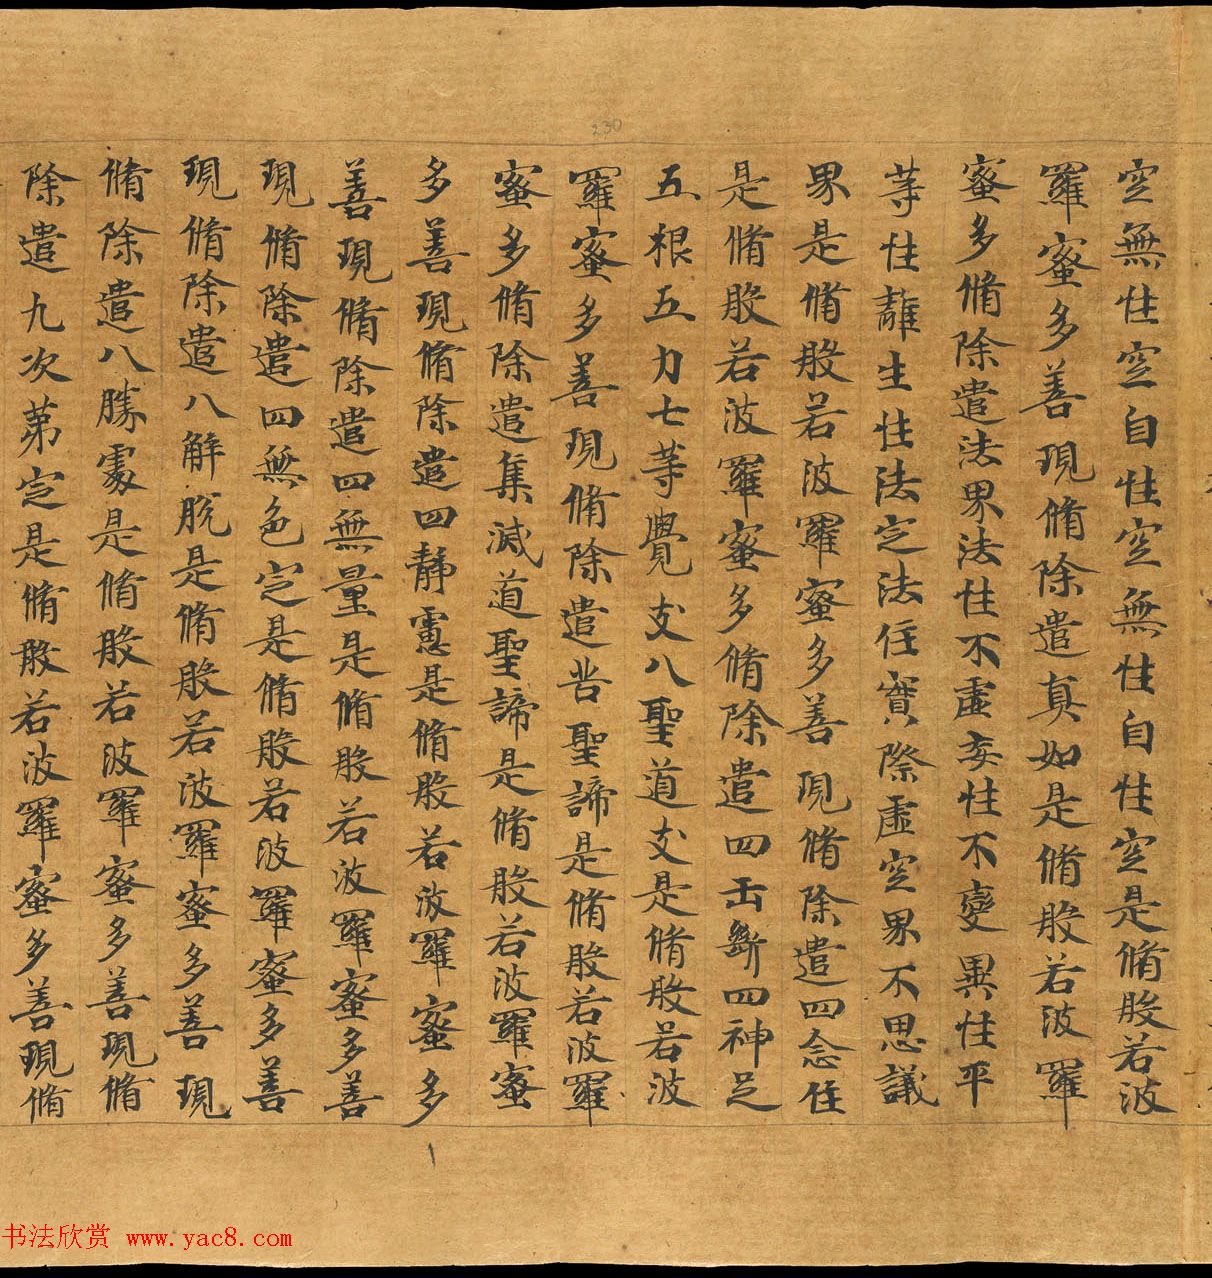 230
空無性空自性空無性自性空是脩般若波
羅蜜多善現脩除遣真如是脩般若波羅
蜜多脩除遣法界法性不虛妄性不變異性平
等性離生性法定法住實際虛空界不思議
界是脩般若波羅蜜多善現脩除遣四念住
是脩般若波羅蜜多脩除遣四正斷四神足
五根五力七等覺支八聖道支是脩般若波
羅蜜多善現脩除遣苦聖諦是脩般若波羅
蜜多脩除遣集滅道聖諦是脩般若波羅蜜
多善現脩除遣四靜慮是脩般若波羅蜜多
善現脩除遣四無量是脩般若波羅蜜多善
現脩除遣四無色定是脩般若波羅蜜多善
現脩除遣八解脫是脩般若波羅蜜多善現
脩除遣八勝處是脩般若波羅蜜多善現脩
除遣九次第定是脩般若波羅蜜多善現脩
书法欣赏 www.yac8.com